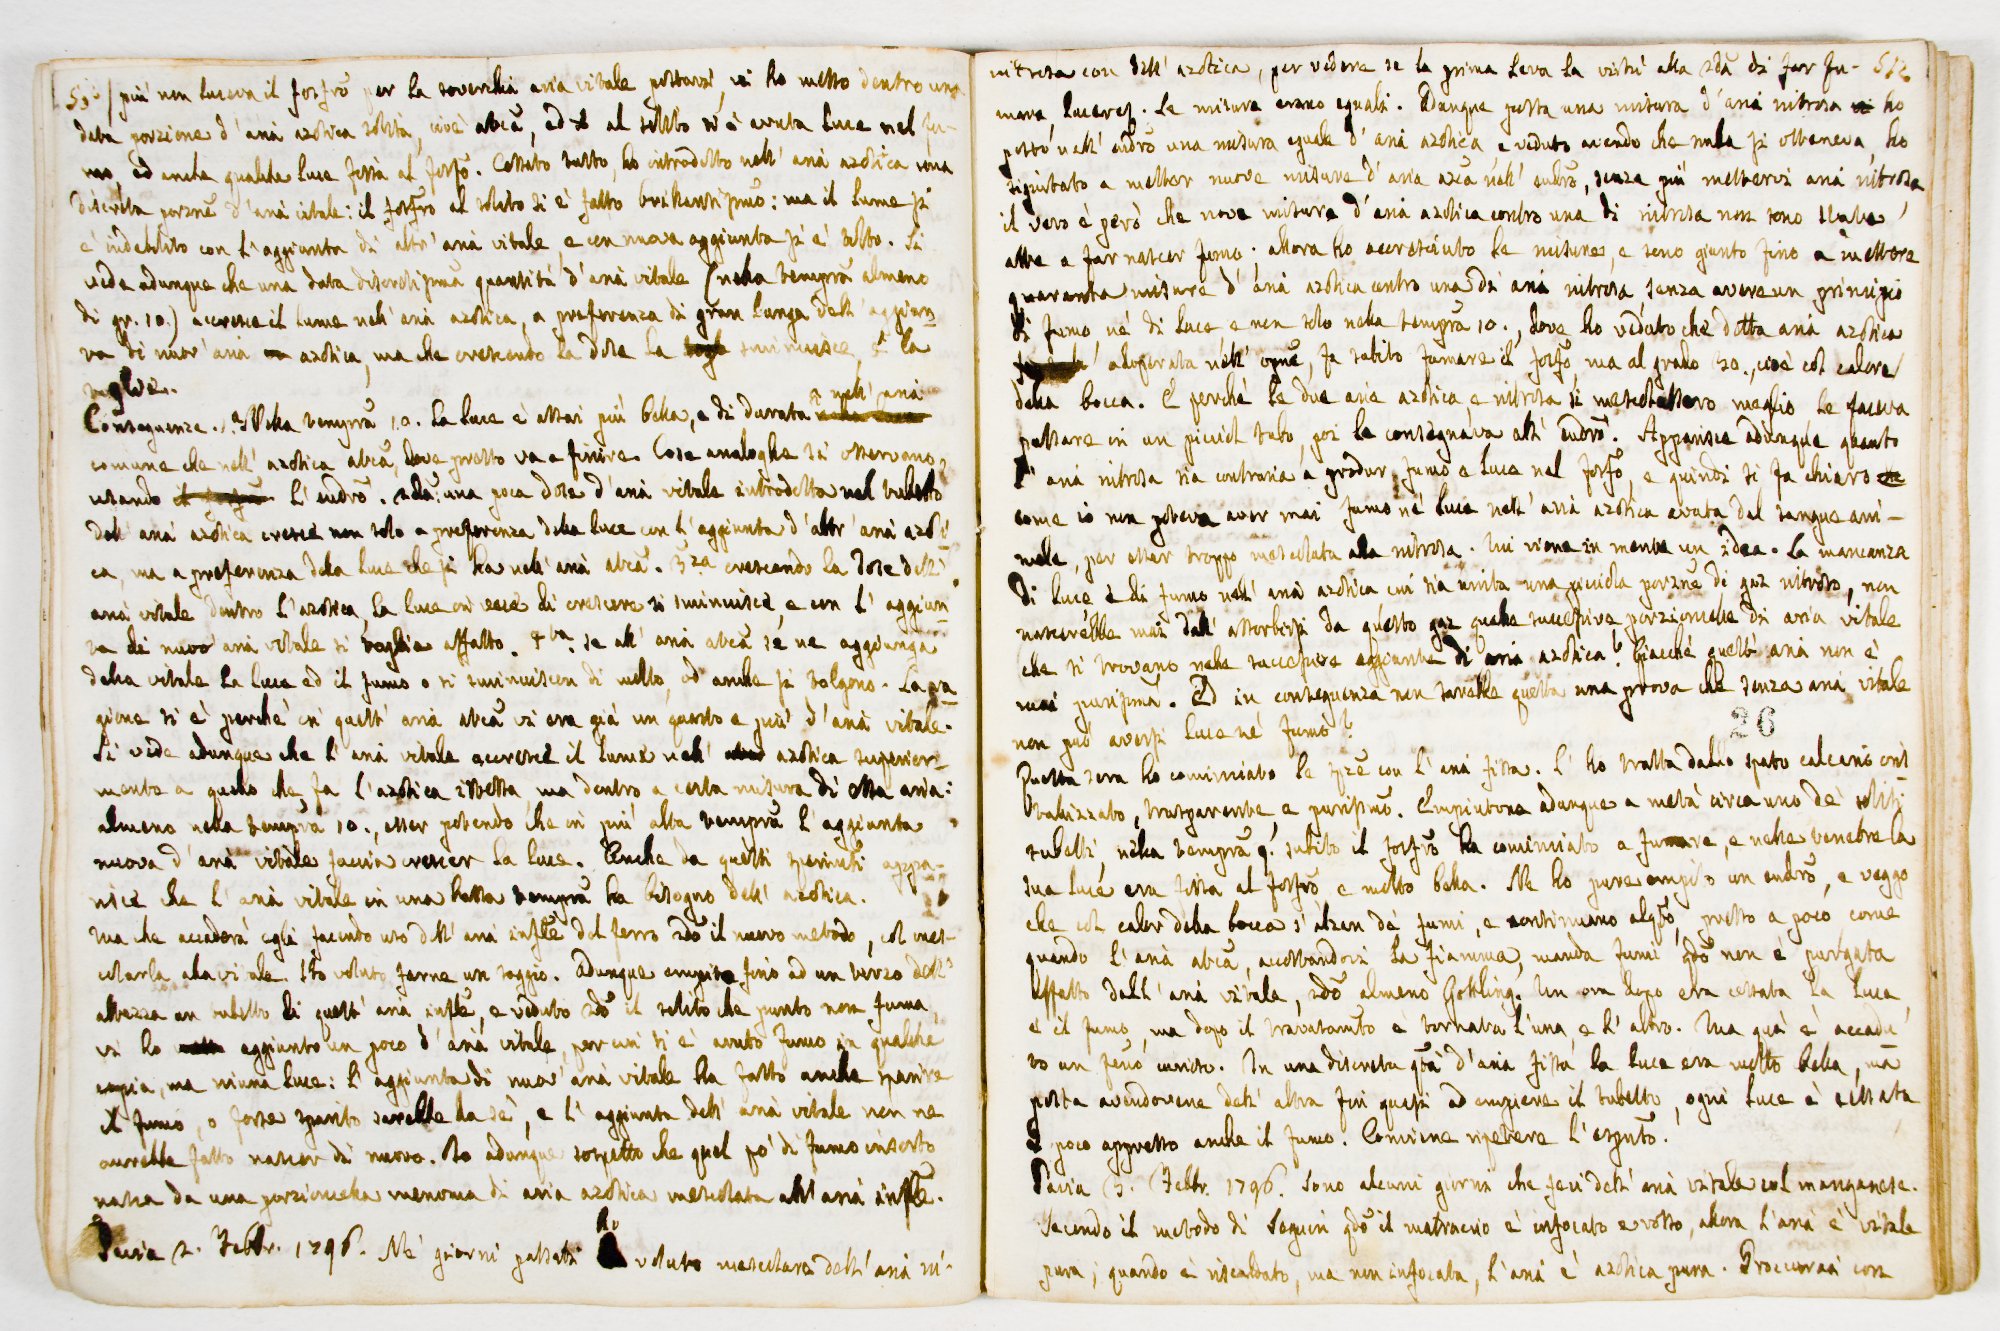 più non luceva il fosfro per la soverchia aria vitale postavi, vi ho messo dentro una
data porzione d'aria azotica solita, cioè atmca, ed al solito si è avuta luce nel fu-
mo, ed anche qualche luce fissa al fosfo. Cessato tutto, ho introdotto nell'aria azotica una
discreta porzne d'aria vitale: il fosfro al solito si è fatto brillantissimo: ma il lume si
è indebolito con l'aggiunta di altr'aria vitale, e con nuova aggiunta si è tolto. Si
vede adunque che una data discretissima quantità d'aria vitale (nella tempra almeno
di gr. 10.) accresce il lume nell'aria azotica, a preferenza di gran lunga dell'aggiun
ta di nuov'aria azotica, ma che crescendo la dose la sminuisce, e la
toglie.
Conseguenze. 1.a Nella tempra 10. la luce è assai più bella, e di durata nell'aria
comune che nell'azotica atmca, dove presto va a finire. Cose analoghe si osservano
usando l'eudro. 2da: una poca dose d'aria vitale introdotta nel tubetto
dell'aria azotica cresce non solo a preferenza della luce con l'aggiunta d'altr'aria azoti
ca, ma a preferenza della luce che si ha nell'aria atmca. 3.za crescendo la dose dell'
aria vitale dentro l'azotica, la luce in vece di crescere si sminuisce, e con l'aggiun
ta di nuov'aria vitale si toglie affatto. 4.ta se all'aria atmca se ne aggiunga
della vitale la luce ed il fumo o si sminuiscon di molto, od anche si tolgono. La ra
gione si è perchè in quest'aria atmca vi era già un quarto e più d'aria vitale.
Si vede adunque che l'aria vitale accresce il lume nell' azotica superior-
mente a quello che fa l'azotica istessa, ma dentro a certa misura di essa aria:
almeno nella tempra 10., esser potendo che in più alta tempra l'aggiunta
nuova d'aria vitale faccia crescer la luce. Anche da questi sperimti appa-
risce che l'aria vitale in una bassa tempra ha bisogno dell'azotica.
Ma che accaderà egli facendo uso dell'aria infle del ferro 2do il nuovo metodo, col mes-
colarla alla vitale. Ho voluto farne un saggio. Adunque empito fino ad un terzo dell'
altezza un tubetto di quest'aria infle, e veduto 2do il solito che punto non fuma,
vi ho aggiunto un poco d'aria vitale, per cui si è avuto fumo in qualche
copia, ma niuna luce: l'aggiunta di nuov'aria vitale ha fatto anche sparire
il fumo, o forse sparito sarebbe da sè, e l'aggiunta dell'aria vitale non ne
avrebbe fatto nascer di nuovo. Io adunque sospetto che quel pò di fumo insorto
nasca da una porzioncella menoma di aria azotica mescolata all'aria infle.
Pavia 2. Febbr. 1796. Ne' giorni passati ho voluto mescolare dell'aria ni-
trosa con dell'azotica, per vedere se la prima leva la virtù alla 2da di far fu- 512
mare, lucere. Le misure erano eguali. Adunque posta una misura d'aria nitrosa ho
posto nell'eudro una misura eguale d'aria azotica e veduto avendo che nulla si otteneva, ho
seguitato a metter nuove misure d'aria azca nell'eudro, senza più mettervi aria nitrosa
il vero è però che nove misure d'aria azotica contro una di nitrosa non sono state
atte a far nascer fumo. Allora ho accresciuto le misure, e sono giunto fino a mettere
quaranta misure d'aria azotica contro una di aria nitrosa senza avere un principio
di fumo, nè di luce e non solo nella tempra 10., dove ho veduto che detta aria azotica
adoperata nell' fa subito fumare il fosfo, ma al grado 30., cioè col calore
della bocca. E perchè le due arie azotica, e nitrosa si mescolassero meglio le faceva
passare in un picciol tubo, poi le consegnava all'eudro. Apparisce adunque quanto
l'aria nitrosa sia contraria a produr fumo e luce nel fosfo, e quindi si fa chiaro
come io non poteva aver mai fumo nè luce nell'aria azotica avuta dal sangue ani-
male, per esser troppo mescolata alla nitrosa. Mi viene in mente un idea. La mancanza
di luce e di fumo nell'aria azotica cui sia unita una picciola porzne di gaz nitroso, non
nascerebbe mai dall'assorbirsi da questo gaz quelle successive porzioncelle di aria vitale
che si trovano nelle successive aggiunte di aria azotica? Giacchè quest'aria non è
mai purissima. Ed in conseguenza non sarebbe questa una prova che senza aria vitale
non può aversi luce nè fumo?
26
Questa sera ho cominciato le spze con l'aria fissa. L'ho tratta dallo spato calcario cris
tallizzato, trasparente, e purissimo. Empiutone adunque a metà circa uno de' soliti
tubetti, nella tempra 9. subito il fosfro ha cominciato a fumare, e nelle tenebre la
sua luce era fissa al fosfro e molto bella. Ne ho pure empito un eudro, e veggo
che col calor della bocca s'alzan de' fumi, e continuano alqto, presto a poco come
quando l'aria atmca, accostandovi la fiamma, manda fumi 2do non è purgata
affatto dall'aria vitale, 2do almeno Gottling. Un ora dopo era cessata la luce
e il fumo, ma dopo il travasamto è tornata l'una, e l'altro. Ma quà è accadu
to un feno curioso. In una discreta qtà d'aria fissa la luce era molto bella, ma
posta avendovene dell'altra fin quasi ad empiere il tubetto, ogni luce è cessata
e poco appresso anche il fumo. Conviene ripetere l'espmto.
Pavia 3. Febbr. 1796. Sono alcuni giorni che feci dell'aria vitale col manganese.
Secondo il metodo di Seguin qdo il matraccio è infocato e rosso, allora l'aria è vitale
pura; quando è riscaldato, ma non infocato, l'aria è azotica pura. Proccurai con